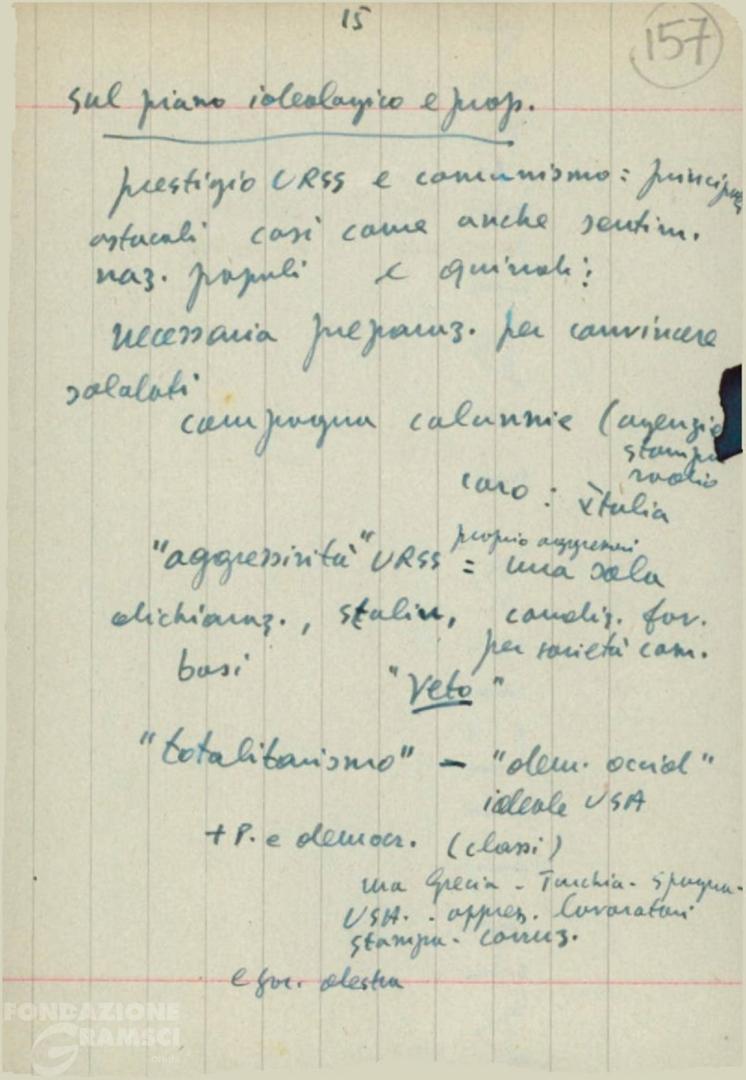 15
157
sul piano ideologico e prop.
prestigio URSS e comunismo: princip
ostacoli così come anche sentim.
naz. popoli e quindi:
necessaria preparaz. per convincere
soldati
campagna calunnie (agenzie
stampa
radio
caso: Italia
"aggressività" URSS = proprio aggressori una sola
dichiaraz., Stalin, condiz. fav.
per società com.
basi
"Veto"
"totalitarismo" - "dem. occid"
ideale USA
+ P. e democr. (classi)
ma Grecia - Turchia - Spagna -
USA - oppress. lavoratori
stampa - corruz.
e gov. destra
FONDAZIONE
GRAMSCI